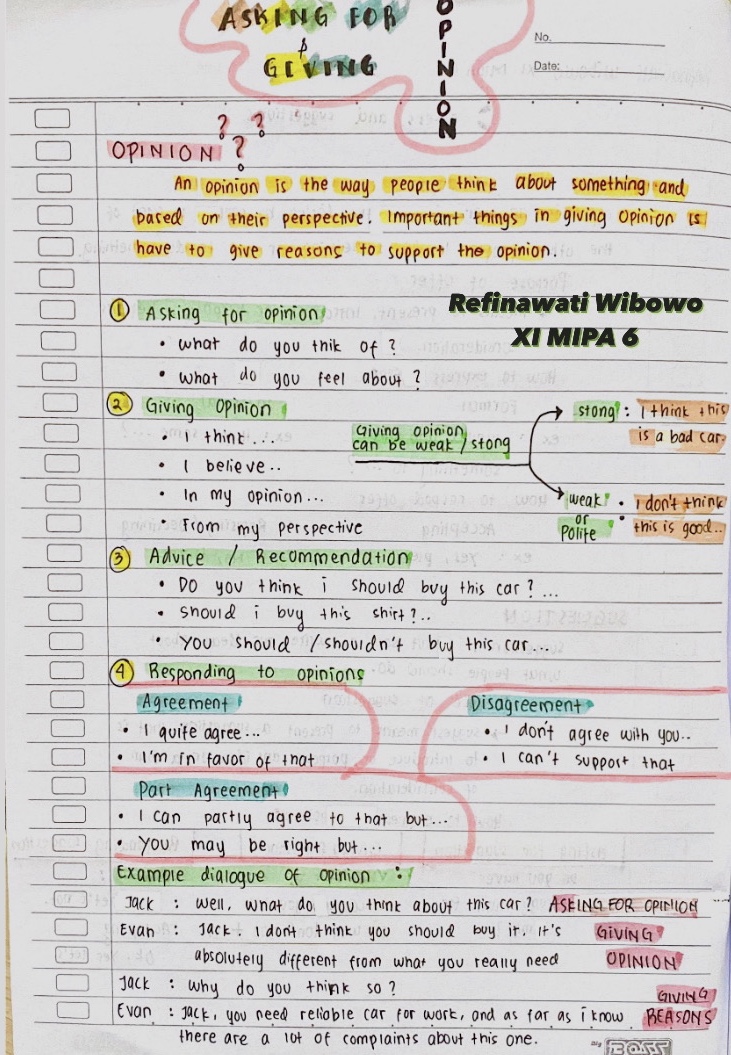 ASKING FOR
&
GIVING
OPINION
No.
Date:
? ?
OPINION ?
An opinion is the way people think about something and
based on their perspective. Important things in giving opinion is
have to give reasons to support the opinion.
Refinawati Wibowo
XI MIPA 6
① Asking for opinion
• what do you thik of ?
• what do you feel about ?
② Giving Opinion
• I think ...
• I believe ..
• In my opinion ...
• From my perspective
Giving opinion
can be weak / stong
stong : I think this
is a bad car
weak : I don't think
or
Polite
this is good..
③ Advice / Recommendation
• Do you think i should buy this car ? ...
• should i buy this shirt ? ..
• You should / shouldn't buy this car ...
④ Responding to opinions
Agreement
• I quite agree ...
• I'm in favor of that
Disagreement
• I don't agree with you..
• I can't support that
Part Agreement
• I can partly agree to that but ...
• You may be right but ...
Example dialogue of opinion :
Jack : well, what do you think about this car? ASKING FOR OPINION
Evan : Jack, I don't think you should buy it. It's GIVING
absolutely different from what you really need OPINION
Jack : why do you think so ?
GIVING
Evan : Jack, you need reliable car for work, and as far as i know REASONS
there are a lot of complaints about this one.
Big BOSS